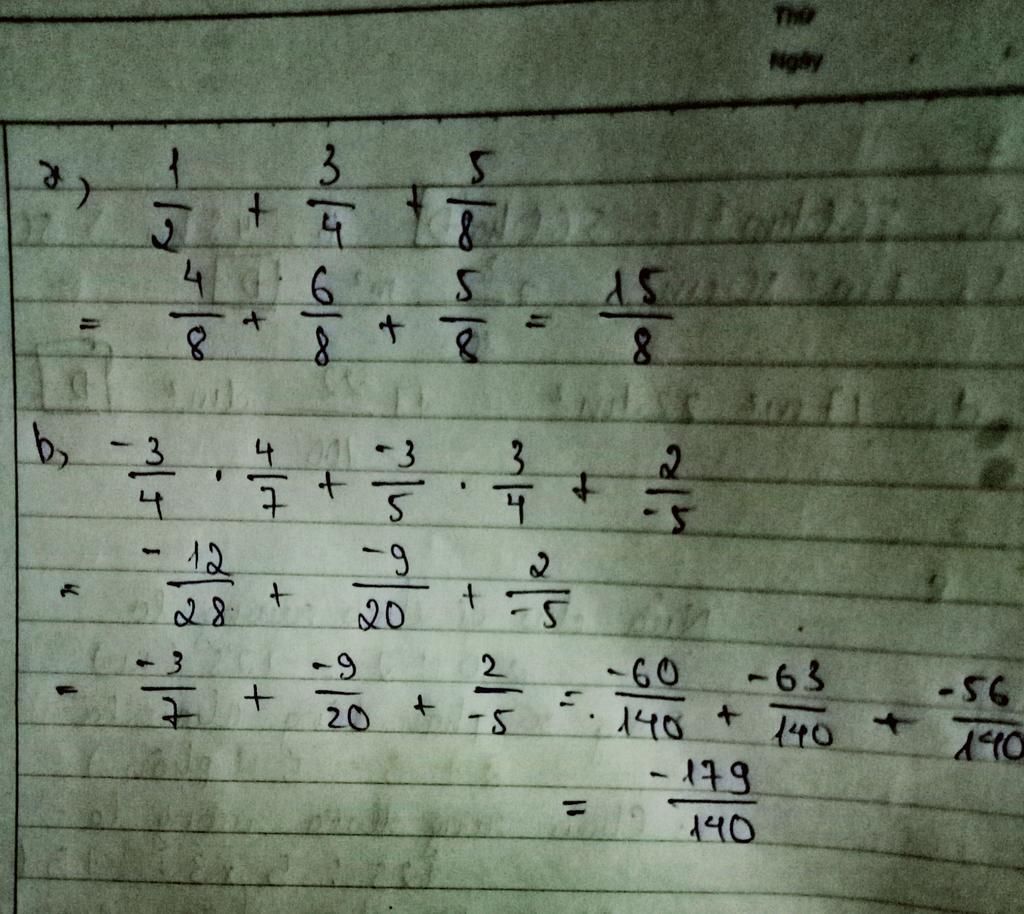 Thứ
Ngày
a, 1/2 + 3/4 + 5/8
= 4/8 + 6/8 + 5/8 = 15/8
b, -3/4 . 4/7 + -3/5 . 3/4 + 2/-5
= -12/28 + -9/20 + 2/-5
= -3/7 + -9/20 + 2/-5 = -60/140 + -63/140 + -56/140
= -179/140